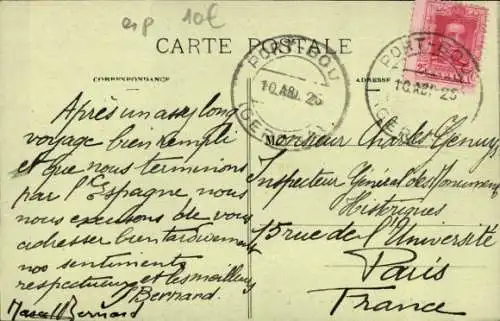 esp 10€
CARTE POSTALE
CORRESPONDANCE
ADRESSE
PORT-BOU
10 ABR. 26
(GERONA)
PORT-BOU
10 ABR. 26
(GERONA)
25
Après un assez long
voyage bien rempli
et que nous terminons
par l'Espagne nous
nous excusons de vous
adresser bien tardivement
nos sentiments
respectueux et les meilleurs
Bernard
Marcel Bernard
Monsieur Charles Génuys
Inspecteur Général des Monuments
Historiques
15 rue de l'Université
Paris
France